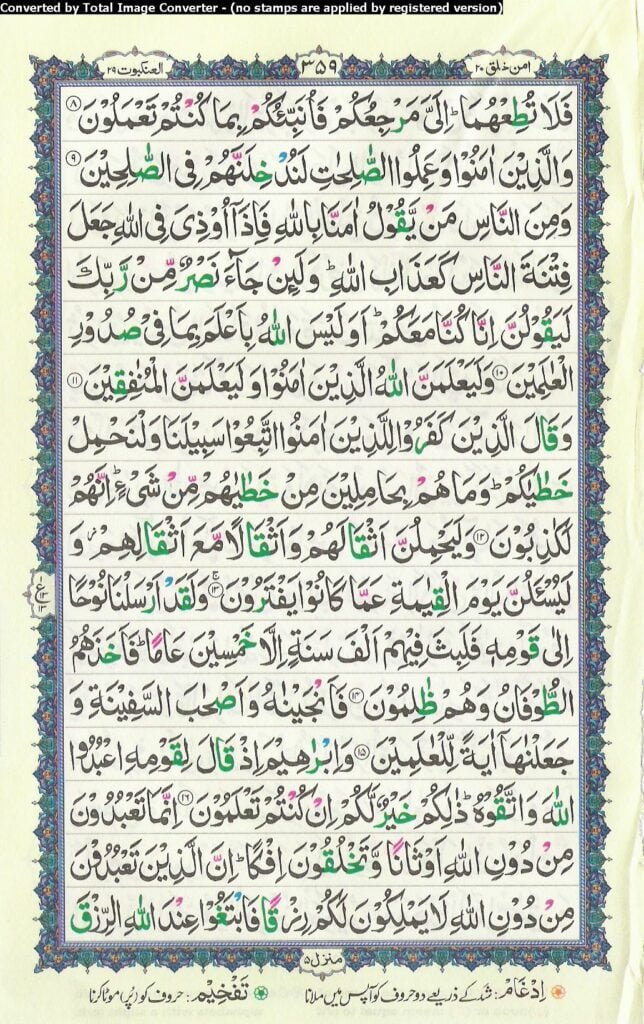 Converted by Total Image Converter - (no stamps are applied by registered version)
امن خلق ۲۰
۳۵۹
العنکبوت ۲۹
فَلَا تُطِعْهُمَا ؕ اِلَیَّ مَرْجِعُكُمْ فَاُنَبِّئُكُمْ بِمَا كُنْتُمْ تَعْمَلُوْنَ ۸
وَالَّذِیْنَ اٰمَنُوْا وَعَمِلُوا الصّٰلِحٰتِ لَنُدْخِلَنَّهُمْ فِی الصّٰلِحِیْنَ ۹
وَمِنَ النَّاسِ مَنْ یَّقُوْلُ اٰمَنَّا بِاللّٰهِ فَاِذَاۤ اُوْذِیَ فِی اللّٰهِ جَعَلَ
فِتْنَةَ النَّاسِ كَعَذَابِ اللّٰهِ ؕ وَلَئِنْ جَآءَ نَصْرٌ مِّنْ رَّبِّكَ
لَیَقُوْلُنَّ اِنَّا كُنَّا مَعَكُمْ ؕ اَوَلَیْسَ اللّٰهُ بِاَعْلَمَ بِمَا فِیْ صُدُوْرِ
الْعٰلَمِیْنَ ۱۰ وَلَیَعْلَمَنَّ اللّٰهُ الَّذِیْنَ اٰمَنُوْا وَلَیَعْلَمَنَّ الْمُنٰفِقِیْنَ ۱۱
وَقَالَ الَّذِیْنَ كَفَرُوْا لِلَّذِیْنَ اٰمَنُوا اتَّبِعُوْا سَبِیْلَنَا وَلْنَحْمِلْ
خَطٰیٰكُمْ ؕ وَمَا هُمْ بِحَامِلِیْنَ مِنْ خَطٰیٰهُمْ مِّنْ شَیْءٍ ؕ اِنَّهُمْ
لَكٰذِبُوْنَ ۱۲ وَلَیَحْمِلُنَّ اَثْقَالَهُمْ وَاَثْقَالًا مَّعَ اَثْقَالِهِمْ ؗ وَ
لَیُسْـَٔلُنَّ یَوْمَ الْقِیٰمَةِ عَمَّا كَانُوْا یَفْتَرُوْنَ ۱۳ وَلَقَدْ اَرْسَلْنَا نُوْحًا
اِلٰی قَوْمِهٖ فَلَبِثَ فِیْهِمْ اَلْفَ سَنَةٍ اِلَّا خَمْسِیْنَ عَامًا ؕ فَاَخَذَهُمُ
الطُّوْفَانُ وَهُمْ ظٰلِمُوْنَ ۱۴ فَاَنْجَیْنٰهُ وَاَصْحٰبَ السَّفِیْنَةِ وَ
جَعَلْنٰهَاۤ اٰیَةً لِّلْعٰلَمِیْنَ ۱۵ وَاِبْرٰهِیْمَ اِذْ قَالَ لِقَوْمِهِ اعْبُدُوا
اللّٰهَ وَاتَّقُوْهُ ؕ ذٰلِكُمْ خَیْرٌ لَّكُمْ اِنْ كُنْتُمْ تَعْلَمُوْنَ ۱۶ اِنَّمَا تَعْبُدُوْنَ
مِنْ دُوْنِ اللّٰهِ اَوْثَانًا وَّتَخْلُقُوْنَ اِفْكًا ؕ اِنَّ الَّذِیْنَ تَعْبُدُوْنَ
مِنْ دُوْنِ اللّٰهِ لَا یَمْلِكُوْنَ لَكُمْ رِزْقًا فَابْتَغُوْا عِنْدَ اللّٰهِ الرِّزْقَ
منزل ۵
اِدْغَام: شد کے ذریعے دو حروف کو آپس میں ملانا
تَفْخِیْم: حروف کو (پُر) موٹا کرنا